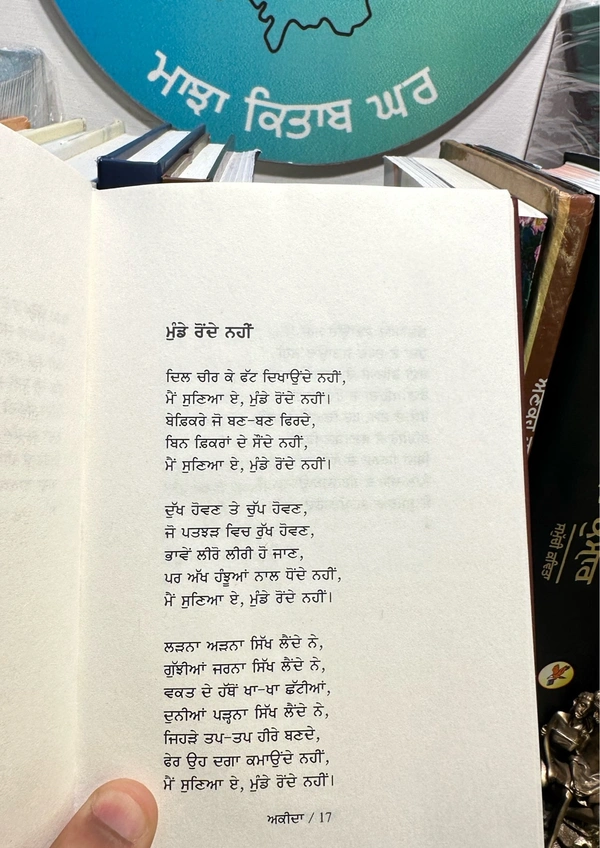 ਮਾਝਾ ਕਿਤਾਬ ਘਰ
ਮੁੰਡੇ ਰੋਂਦੇ ਨਹੀਂ
ਦਿਲ ਚੀਰ ਕੇ ਫੱਟ ਦਿਖਾਉਂਦੇ ਨਹੀਂ,
ਮੈਂ ਸੁਣਿਆ ਏ, ਮੁੰਡੇ ਰੋਂਦੇ ਨਹੀਂ।
ਬੇਫ਼ਿਕਰੇ ਜੋ ਬਣ-ਬਣ ਫਿਰਦੇ,
ਬਿਨ ਫ਼ਿਕਰਾਂ ਦੇ ਸੌਂਦੇ ਨਹੀਂ,
ਮੈਂ ਸੁਣਿਆ ਏ, ਮੁੰਡੇ ਰੋਂਦੇ ਨਹੀਂ।
ਦੁੱਖ ਹੋਵਣ ਤੇ ਚੁੱਪ ਹੋਵਣ,
ਜੋ ਪਤਝੜ ਵਿਚ ਰੁੱਖ ਹੋਵਣ,
ਭਾਵੇਂ ਲੀਰੋ ਲੀਰੀ ਹੋ ਜਾਣ,
ਪਰ ਅੱਖ ਹੰਝੂਆਂ ਨਾਲ ਧੋਂਦੇ ਨਹੀਂ,
ਮੈਂ ਸੁਣਿਆ ਏ, ਮੁੰਡੇ ਰੋਂਦੇ ਨਹੀਂ।
ਲੜਨਾ ਅੜਨਾ ਸਿੱਖ ਲੈਂਦੇ ਨੇ,
ਗੁੱਝੀਆਂ ਜਰਨਾ ਸਿੱਖ ਲੈਂਦੇ ਨੇ,
ਵਕਤ ਦੇ ਹੱਥੋਂ ਖਾ-ਖਾ ਛੱਟੀਆਂ,
ਦੁਨੀਆਂ ਪੜ੍ਹਨਾ ਸਿੱਖ ਲੈਂਦੇ ਨੇ,
ਜਿਹੜੇ ਤਪ-ਤਪ ਹੀਰੇ ਬਣਦੇ,
ਫੇਰ ਉਹ ਦਗਾ ਕਮਾਉਂਦੇ ਨਹੀਂ,
ਮੈਂ ਸੁਣਿਆ ਏ, ਮੁੰਡੇ ਰੋਂਦੇ ਨਹੀਂ।
ਅਕੀਦਾ / 17